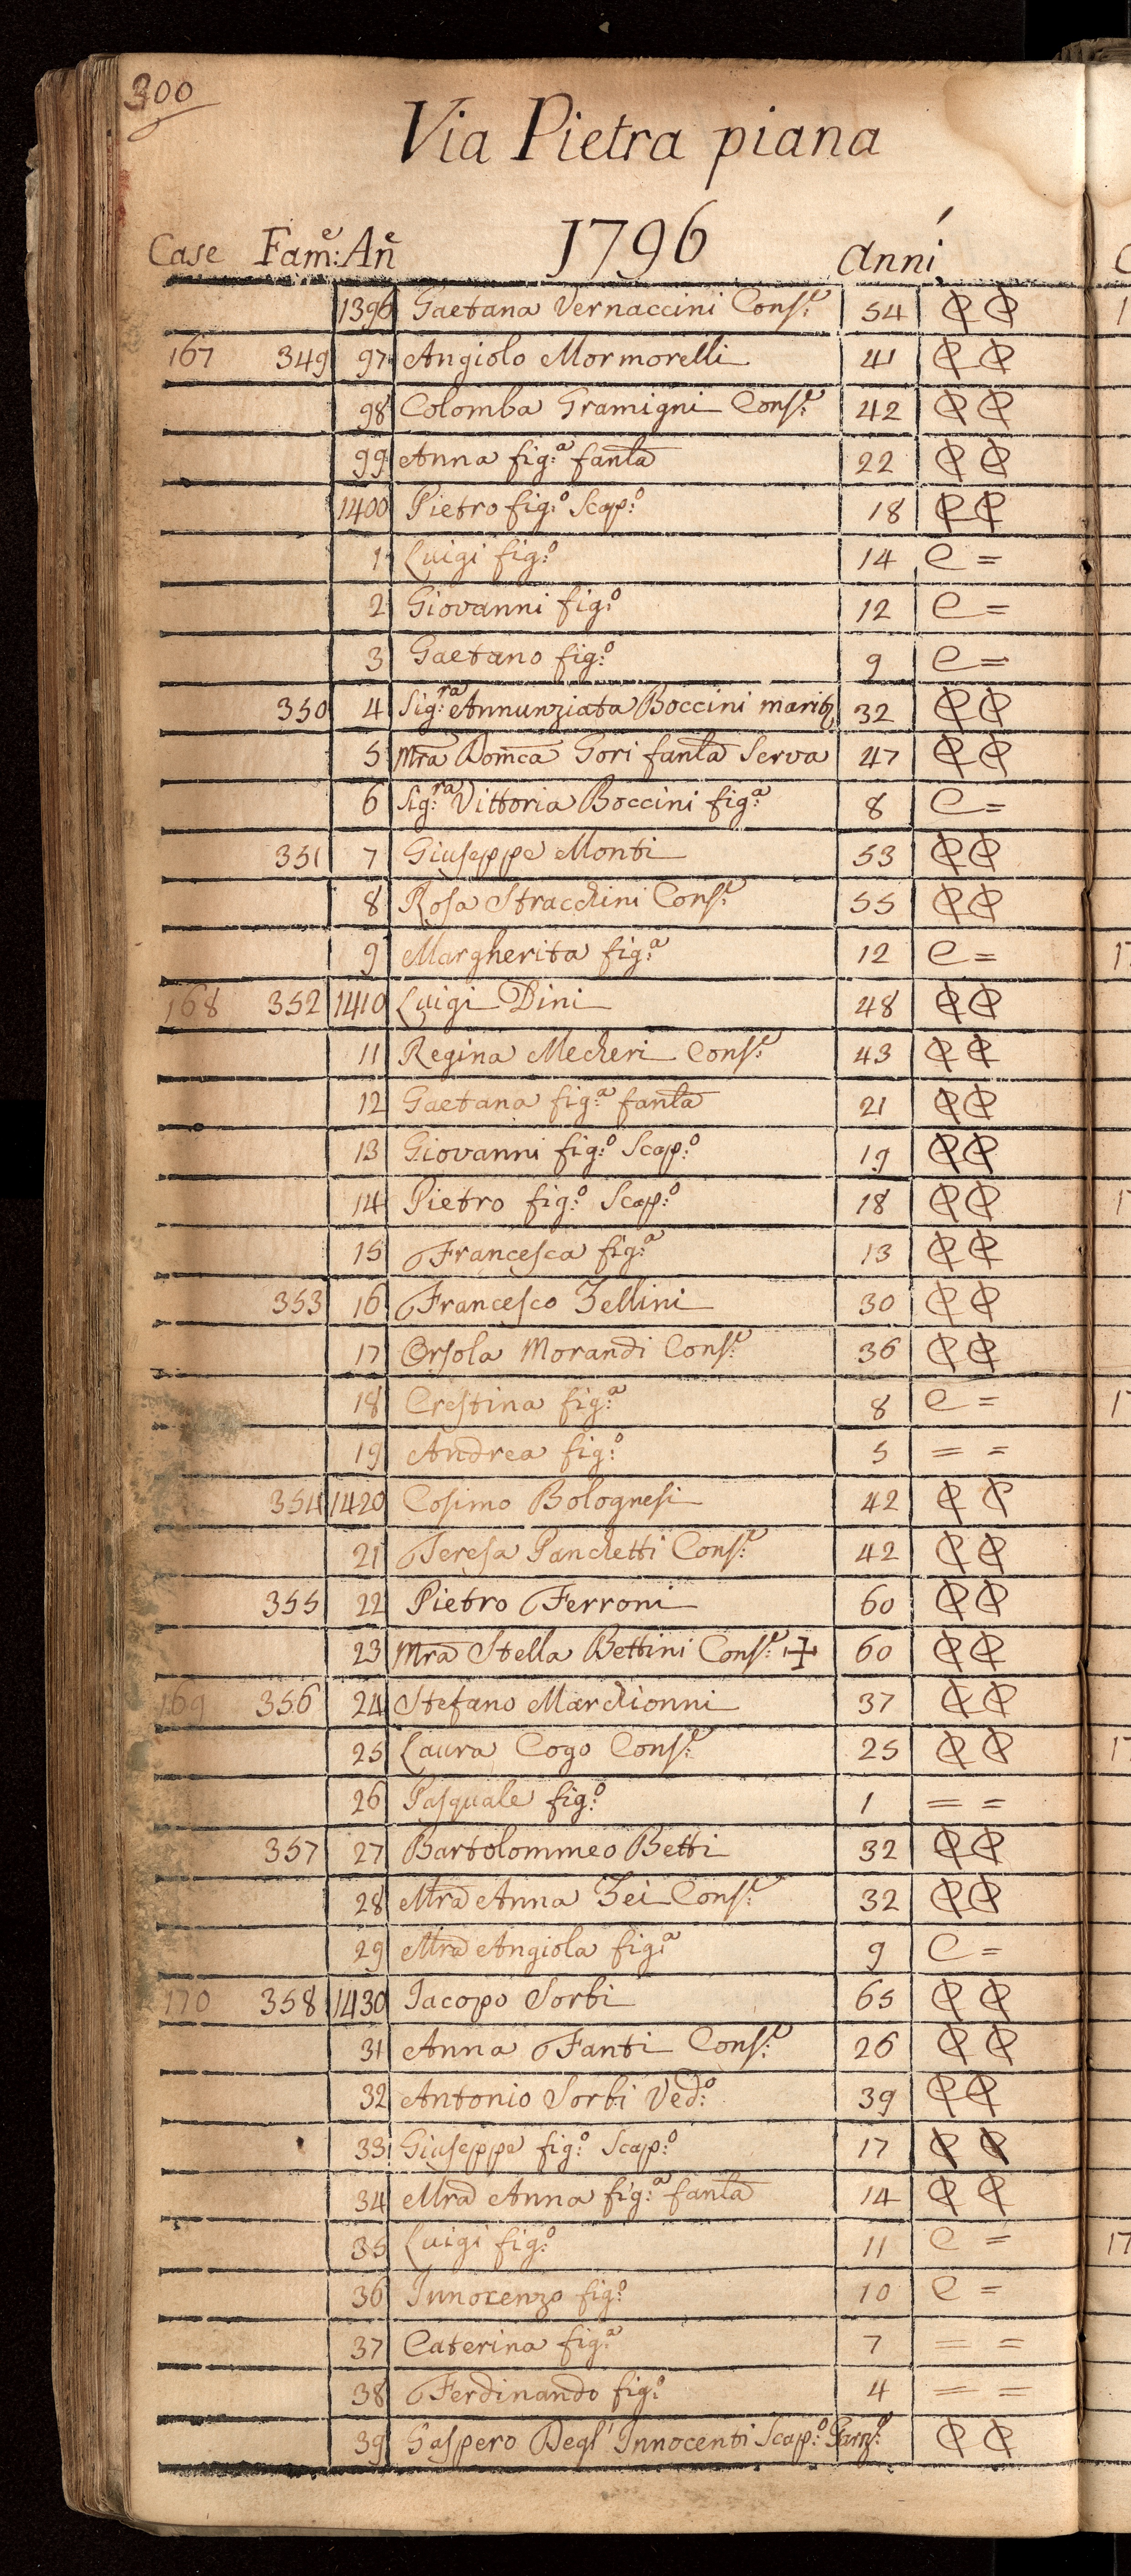 300
Via Pietra piana
1796
Case Fam:e An̄e Anni
1396 Gaetana Vernaccini Cons:e 54
167 349 97 Angiolo Mormorelli 41
98 Colomba Gramigni Cons:e 42
99 Anna fig:a fanla 22
1400 Pietro fig:o Scap:o 18
1 Luigi fig:o 14 C =
2 Giovanni fig:o 12 C =
3 Gaetano fig:o 9 C =
350 4 Sig:ra Annunziata Boccini marit 32
5 Mra Domca Gori fanla Serva 47
6 Sig:ra Vittoria Boccini fig:a 8 C =
351 7 Giuseppe Monti 53
8 Rosa Stracchini Cons:e 55
9 Margherita fig:a 12 C =
168 352 1410 Luigi Dini 48
11 Regina Mecheri Cons:e 43
12 Gaetana fig:a fanla 21
13 Giovanni fig:o Scap:o 19
14 Pietro fig:o Scap:o 18
15 Francesca fig:a 13
353 16 Francesco Zellini 30
17 Orsola Morandi Cons:e 36
18 Crestina fig:a 8 C =
19 Andrea fig:o 5 = =
354 1420 Cosimo Bolognesi 42
21 Teresa Panchetti Cons:e 42
355 22 Pietro Ferroni 60
23 Mra Stella Bettini Cons:e ✠ 60
169 356 24 Stefano Marchionni 37
25 Laura Cogo Cons:e 25
26 Pasquale fig:o 1 = =
357 27 Bartolommeo Betti 32
28 Mra Anna Zei Cons:e 32
29 Mra Angiola fig:a 9 C =
170 358 1430 Iacopo Sorbi 65
31 Anna Fanti Cons:e 26
32 Antonio Sorbi Ved:o 39
33 Giuseppe fig:o Scap:o 17
34 Mra Anna fig:a fanla 14
35 Luigi fig:o 11 C =
36 Innocenzo fig:o 10 C =
37 Caterina fig:a 7 = =
38 Ferdinando fig:o 4 = =
39 Gaspero Degl' Innocenti Scap:o Garz:e